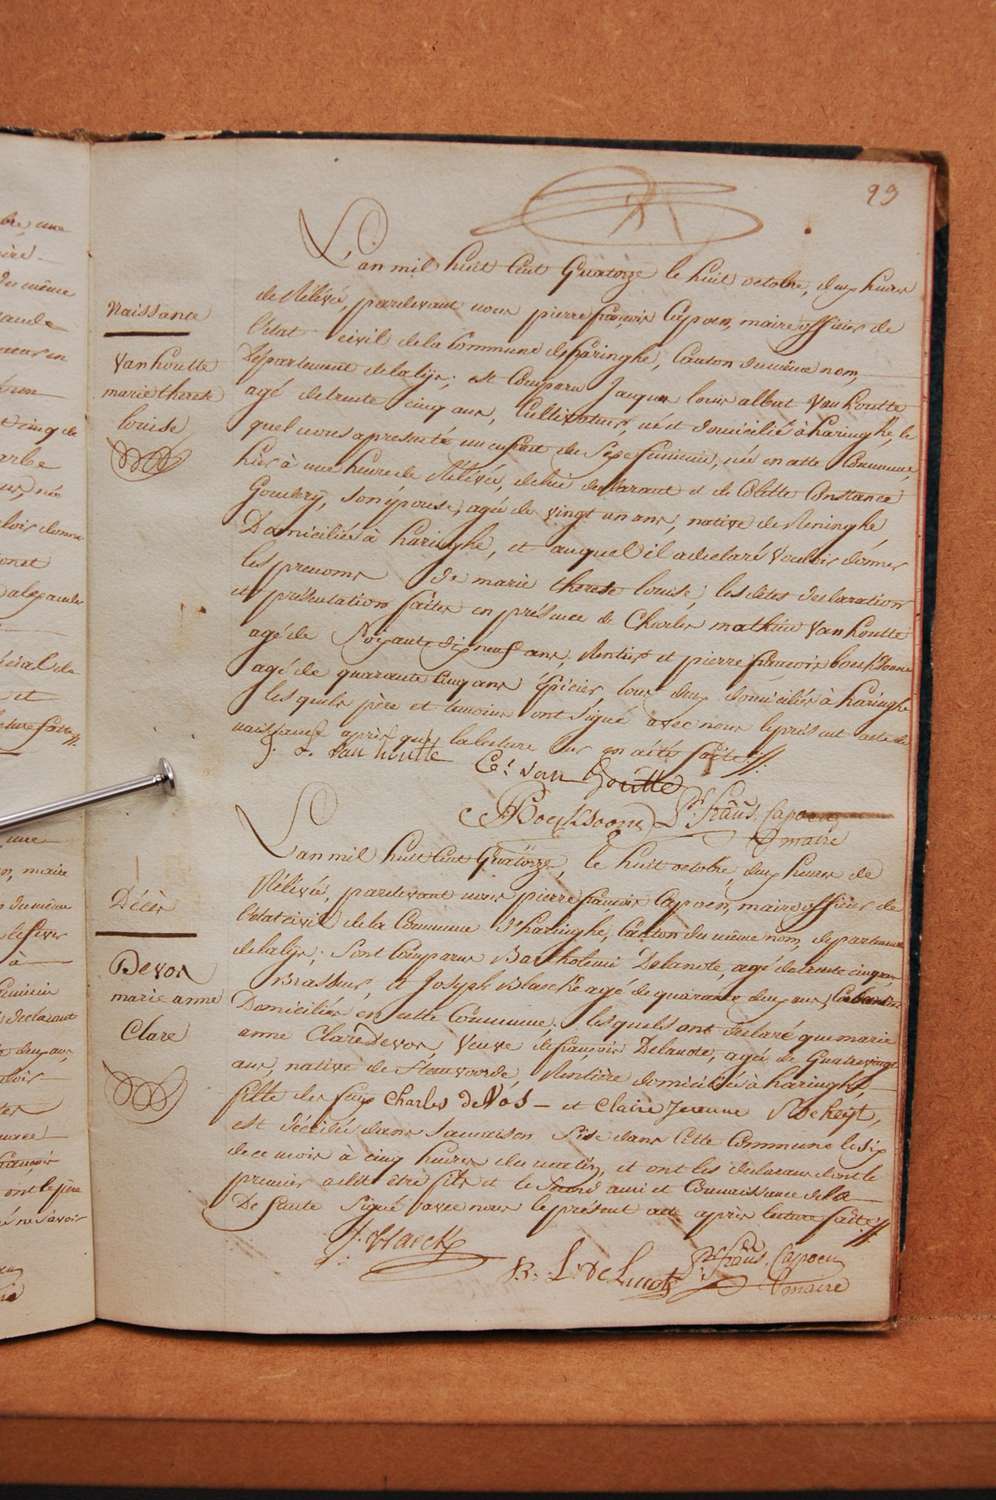 93
Naissance
Vanhoutte
marie therese
louise
L'an mil huit Cent Quatorze le huit octobre, deux heures
de Rélévée, pardevant nous pierre françois Capoen, maire officier de
l'état civil de la Commune d'haringhe, Canton du même nom,
Département de la lys; est Comparu Jaques louis albert Vanhoutte
agé de trente cinq ans, Cultivateur, né et domicilié à haringhe, le
quel nous a presenté un enfant du Sexe feminin, née en cette Commune,
hier à une heure de Rélévée, de lui declarant et de Colette Constance
Goudry, son epouse, agée de vingt un ans, native de Reninghe,
Domiciliés à haringhe, et auquel il a declaré vouloir donner
les prenoms de marie therese louise; les dites declaration
et présentation faites en présence de Charles mathieu Vanhoutte
agé de Soixante dix neuf ans, Rentier et pierre françois bouckdoone
agé de quarante cinq ans Epicier, tous deux domiciliés à haringhe
les quels père et temoins ont signé avec nous le présent acte de
naissance après que la lecture leur en a été faite //.
J. L. Van houtte Ch. van Houtte
PF Capoen
maire
Décès
Devos
marie anne
Clare
L'an mil huit Cent Quatorze, le huit octobre, deux heures de
Rélévée, pardevant nous pierre françois Capoen, maire officier de
l'etat civil de la Commune d'haringhe, Canton du même nom, departement
de la lys: Sont Comparus Bartholemi Delanote, agé de trente cinq ans
Brasseur, et Joseph Blaecke agé de quarante deux ans,
Domiciliés en cette Commune; lesquels ont declaré que marie
anne Clare Devos, Veuve de françois Delanote, agée de Quatrevingt
ans, native de Steenvoorde Rentière domiciliée à haringhe,
fille des feux Charles de Vos – et Claire Jeanne
est décédée dans Sa maison Sise dans Cette Commune le six
de ce mois à cinq heures du matin, et ont les declarans dont le
premier a dit être fils et le Second ami et Connaissance de la
Defunte Signé avec nous le présent acte après lecture faite //.
J. Blaecke
B. L. De Lanote Pre frans. Capoen
maire